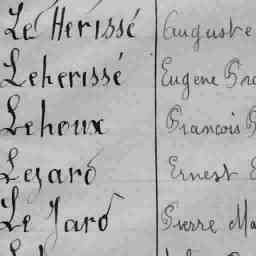 Le Hérissé Auguste
Leherissé Eugene
Lehoux Francois
Legard Ernest
Le Jard Pierre Ma